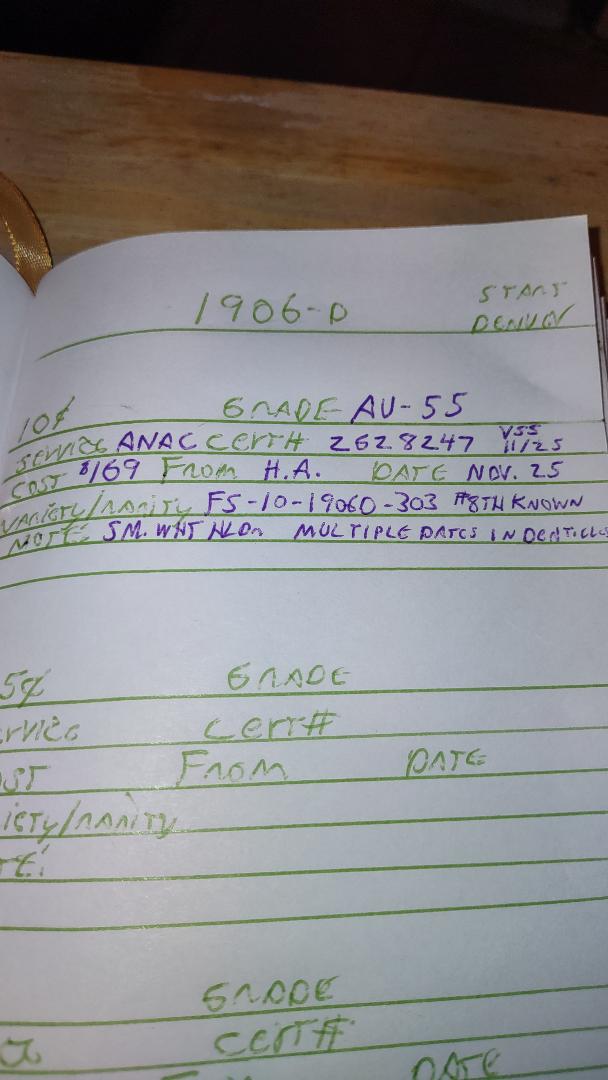 1906-D START
DENVER
10¢ GRADE AU-55
SERVICE ANAC CERT# 2628247 VSS
11/25
COST $169 FROM H.A. DATE NOV. 25
VARIETY/RARITY FS-10-1906D-303 #8TH KNOWN
NOTE: SM. WHT HLDR MULTIPLE DATES IN DENTICLES
5¢ GRADE
ERVICE CERT#
OST FROM DATE
IETY/RARITY
TE:
GRADE
CERT#
DATE